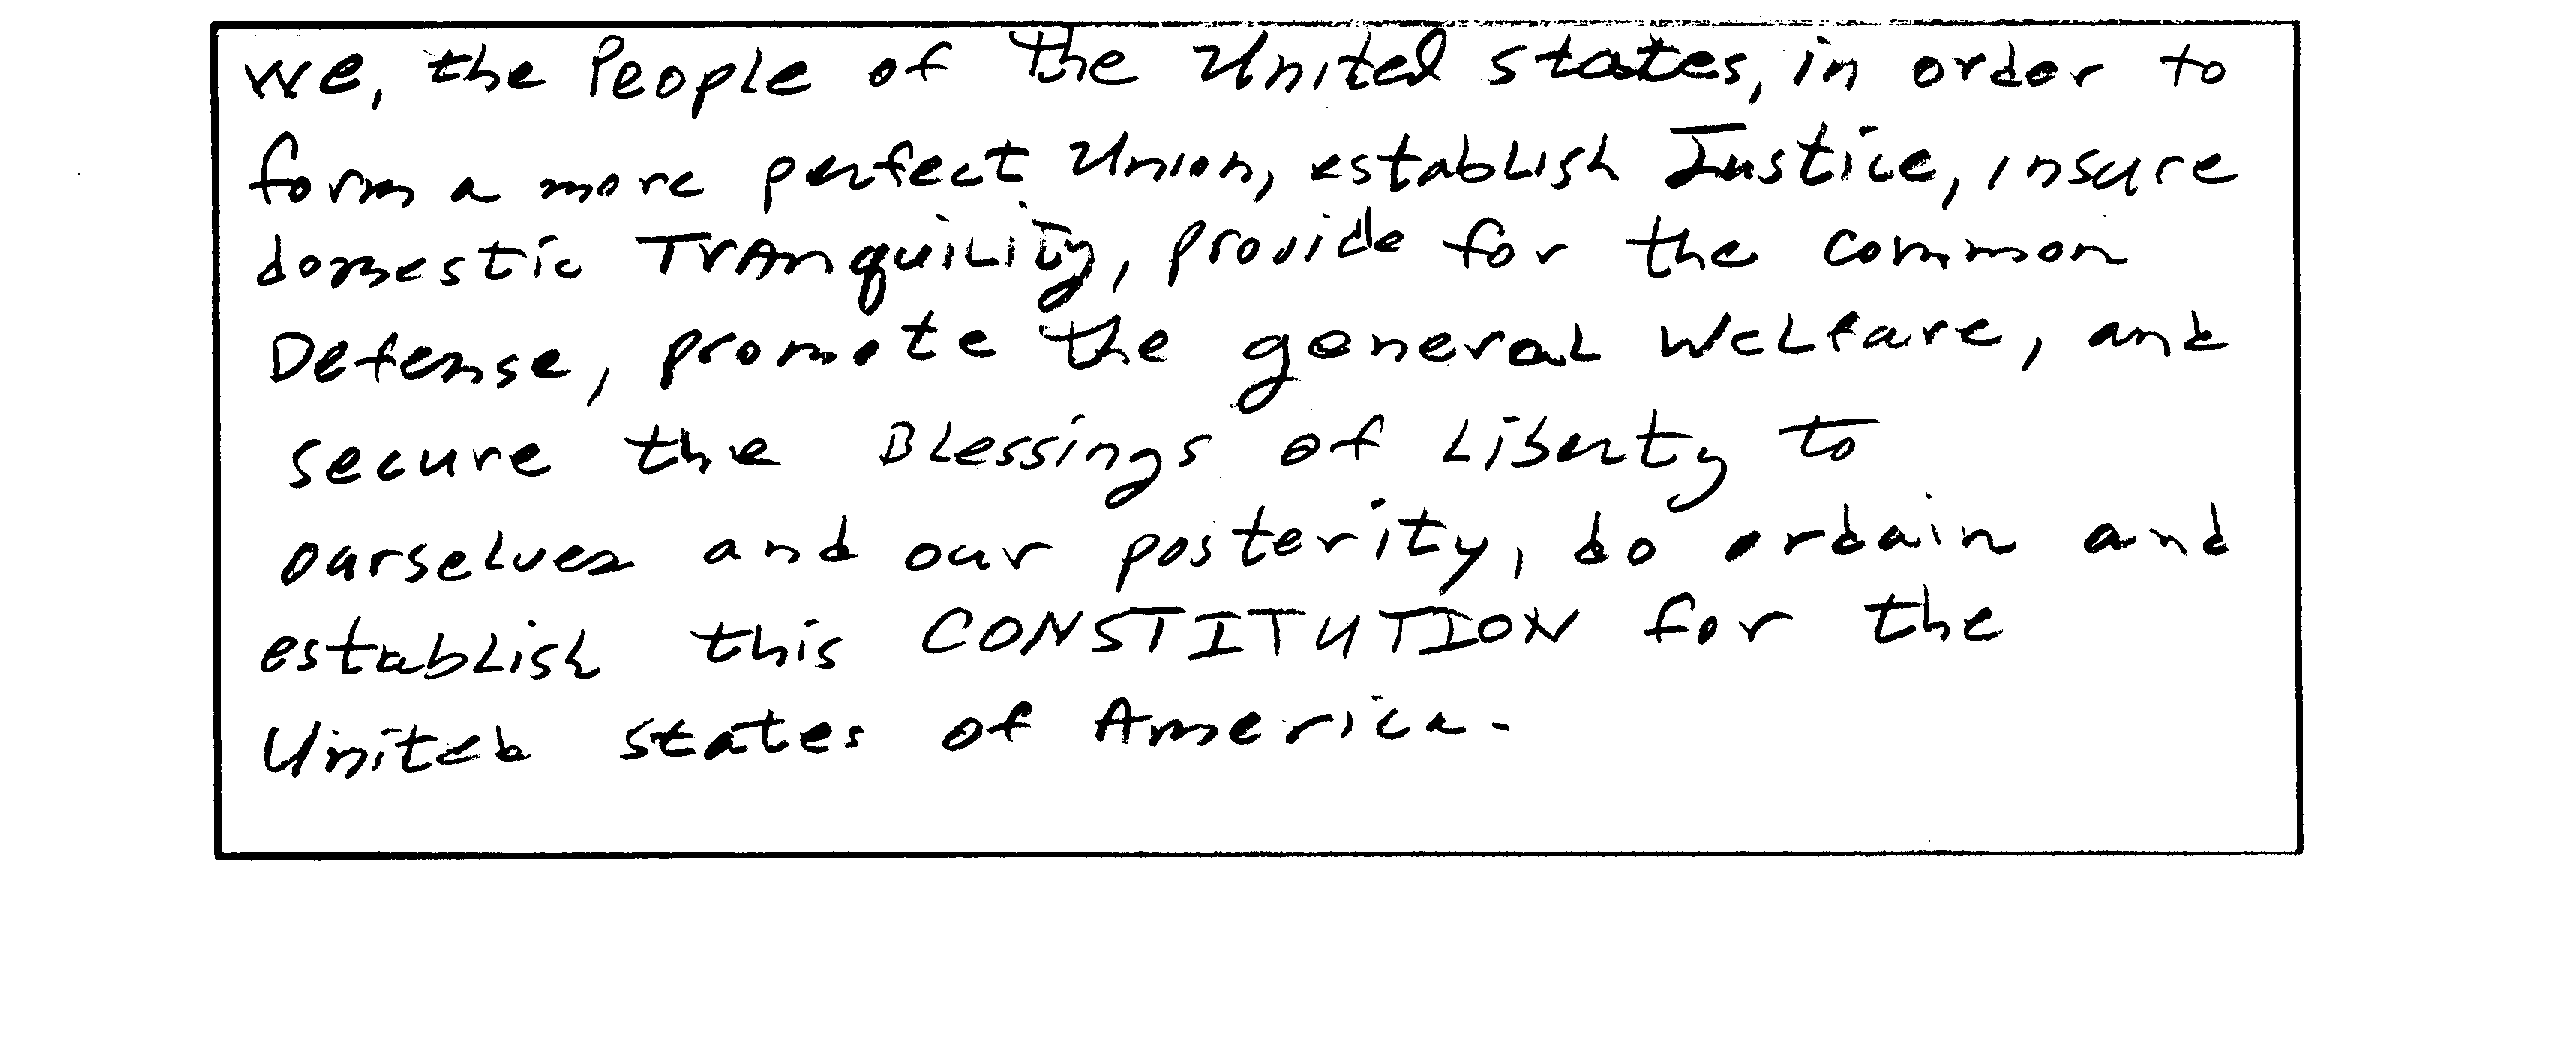 We, the People of the United States, in order to
form a more perfect Union, establish Justice, insure
domestic Tranquility, provide for the common
Defense, promote the general Welfare, and
secure the Blessings of Liberty to
ourselves and our posterity, do ordain and
establish this CONSTITUTION for the
United States of America.